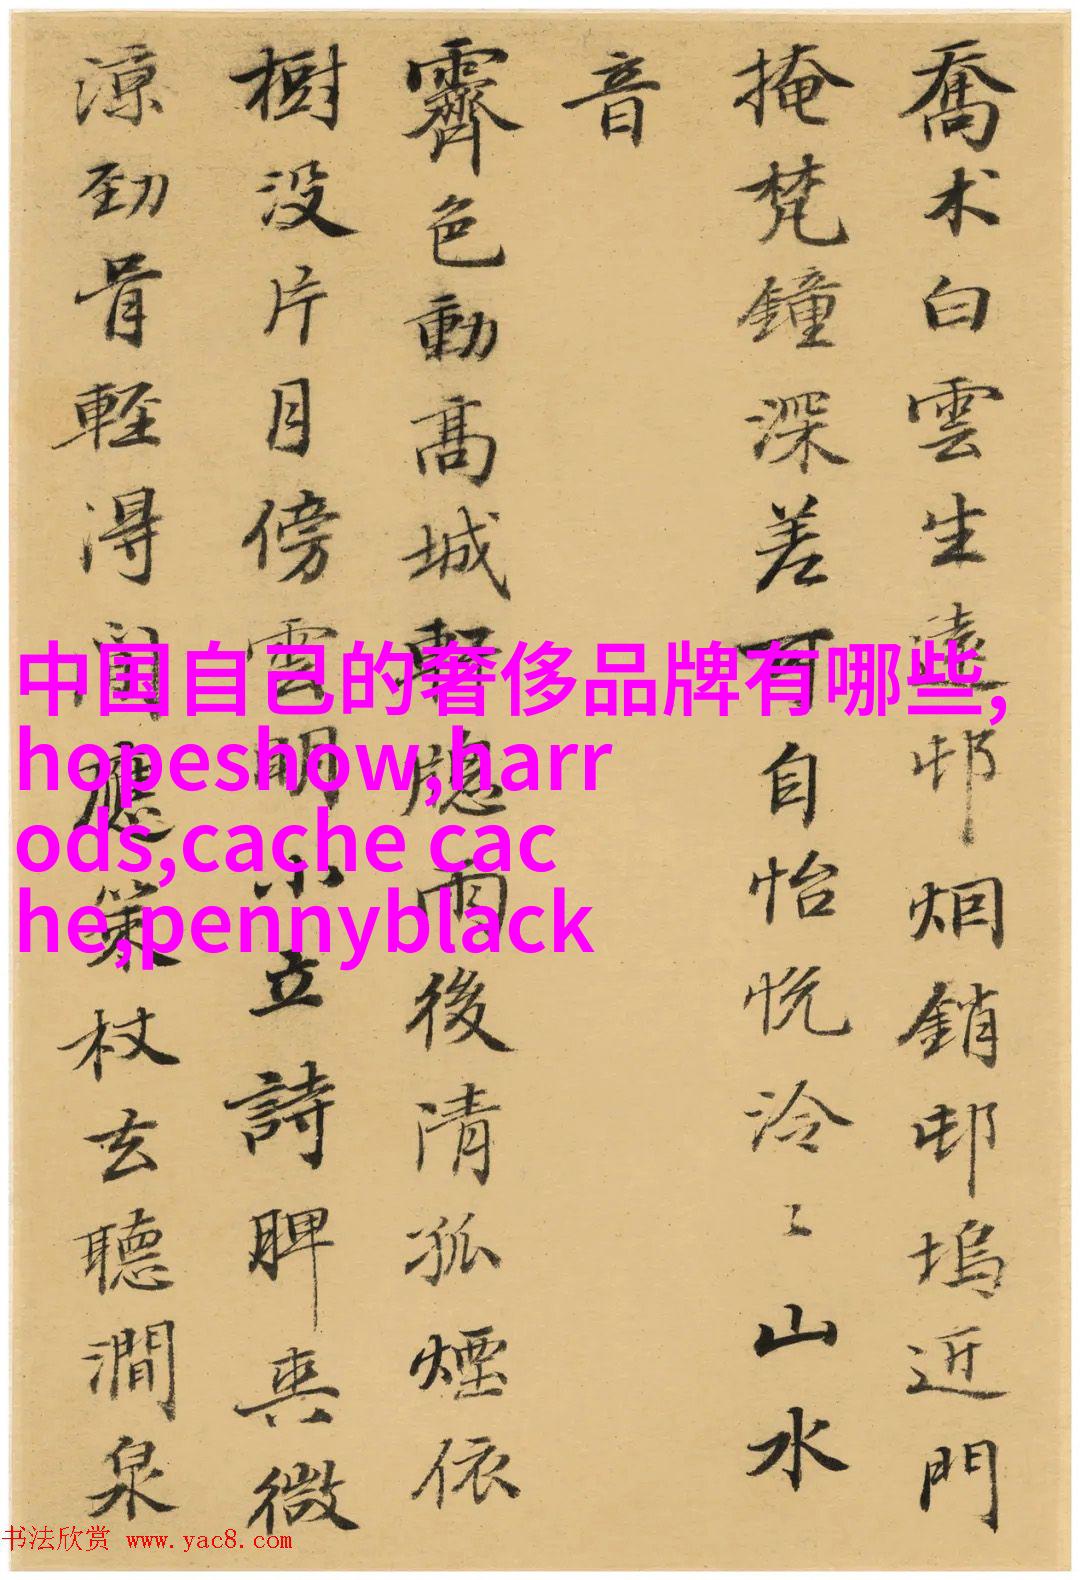 喬木白雲生遠邨烟銷邨塢近門
掩梵鐘深差可自怡悦泠〻山水
音
霽色動高城軒牕雨後清孤煙依
樹没片月傍雲明小立詩脾爽微
涼勁骨輕得閒應策杖去聽澗泉
中国自己的奢侈品牌有哪些,
hopeshow,harr
ods,cache cac
he,pennyblack
书法欣赏 www.yac8.com